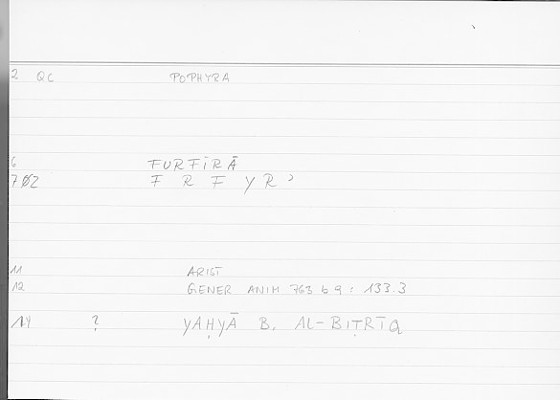 2 QC POPHYRA
6 FURFĪRĀ
7Ø2 F R F Y R ʾ
11 ARIST
12 GENER ANIM 763 b 9 : 133.3
14 ? YAḤYĀ B. AL-BIṬRĪQ